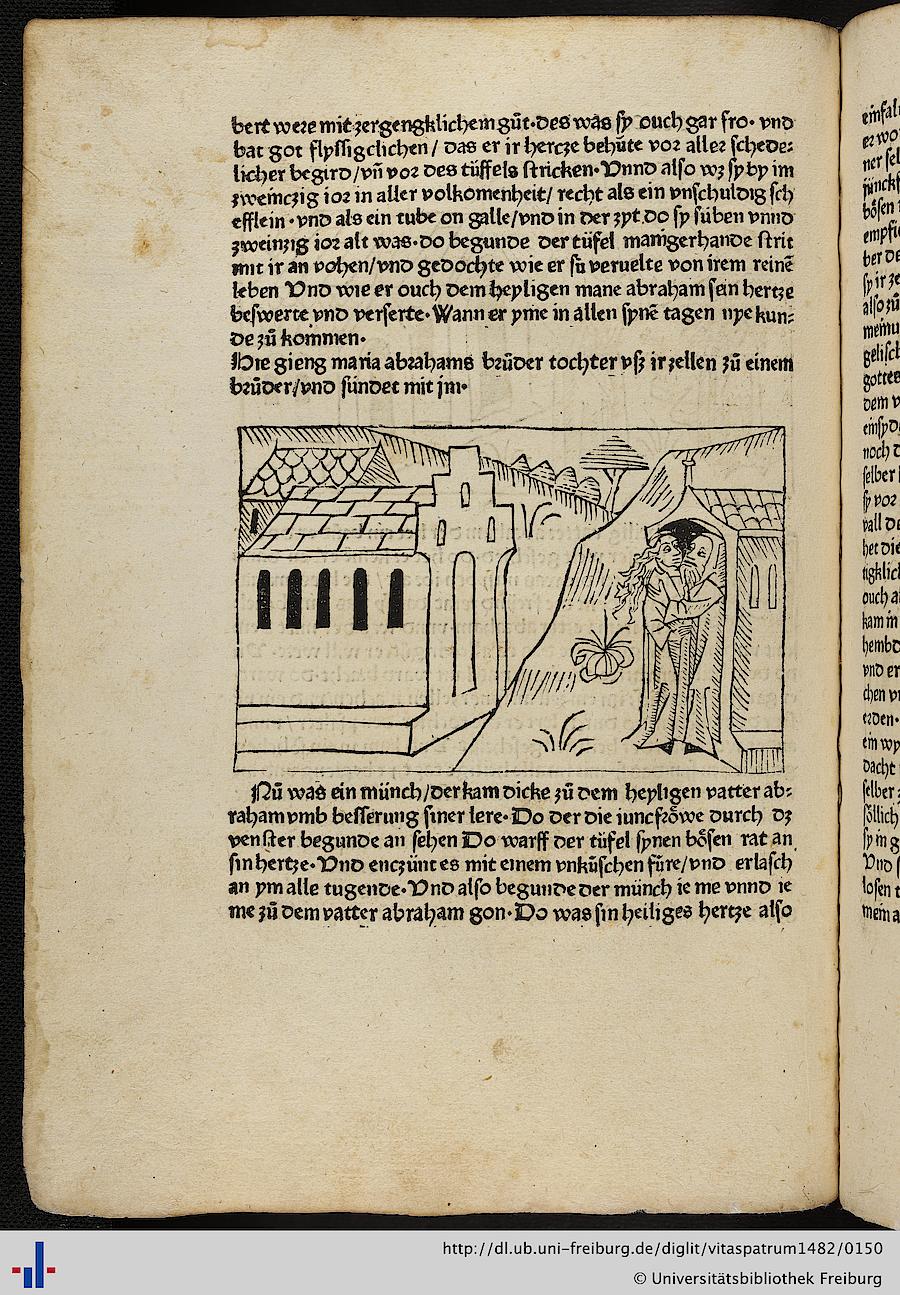 bert were mit zergengklichem gůt·des was sy ouch gar fro· vnd
bat got flyssigclichen / das er ir hercze behůte vor aller schede⸗
licher begird/vn̄ vor des tüffels stricken· Vnnd also wz sy by im
zweinczig ior in aller volkomenheit/ recht als ein vnschuldig sch
efflein · vnd als ein tube on galle/vnd in der zyt do sy süben vnnd
zweinzig ior alt was· do begunde der tüfel mangerhande strit
mit ir an vohen/vnd gedochte wie er sü veruelte von irem reinē
leben Vnd wie er ouch dem heyligen mane abraham sein hertze
beswerte vnd verserte· Wann er yme in allen synē tagen nye kun⸗
de zů kommen·
Hie gieng maria abrahams brůder tochter vsz ir zellen zů einem
brůder/vnd sündet mit jm·
Nů was ein münch/der kam dicke zů dem heyligen vatter ab⸗
raham vmb besserung siner lere· Do der die iuncfrŏwe durch dz
venster begunde an sehen Do warff der tüfel synen bŏsen rat an
sin hertze· Vnd enczünt es mit einem vnkůschen füre/vnd erlasch
an ym alle tugende· Vnd also begunde der münch ie me vnnd ie
me zů dem vatter abraham gon· Do was sin heiliges hertze also
http://dl.ub.uni-freiburg.de/diglit/vitaspatrum1482/0150
© Universitätsbibliothek Freiburg